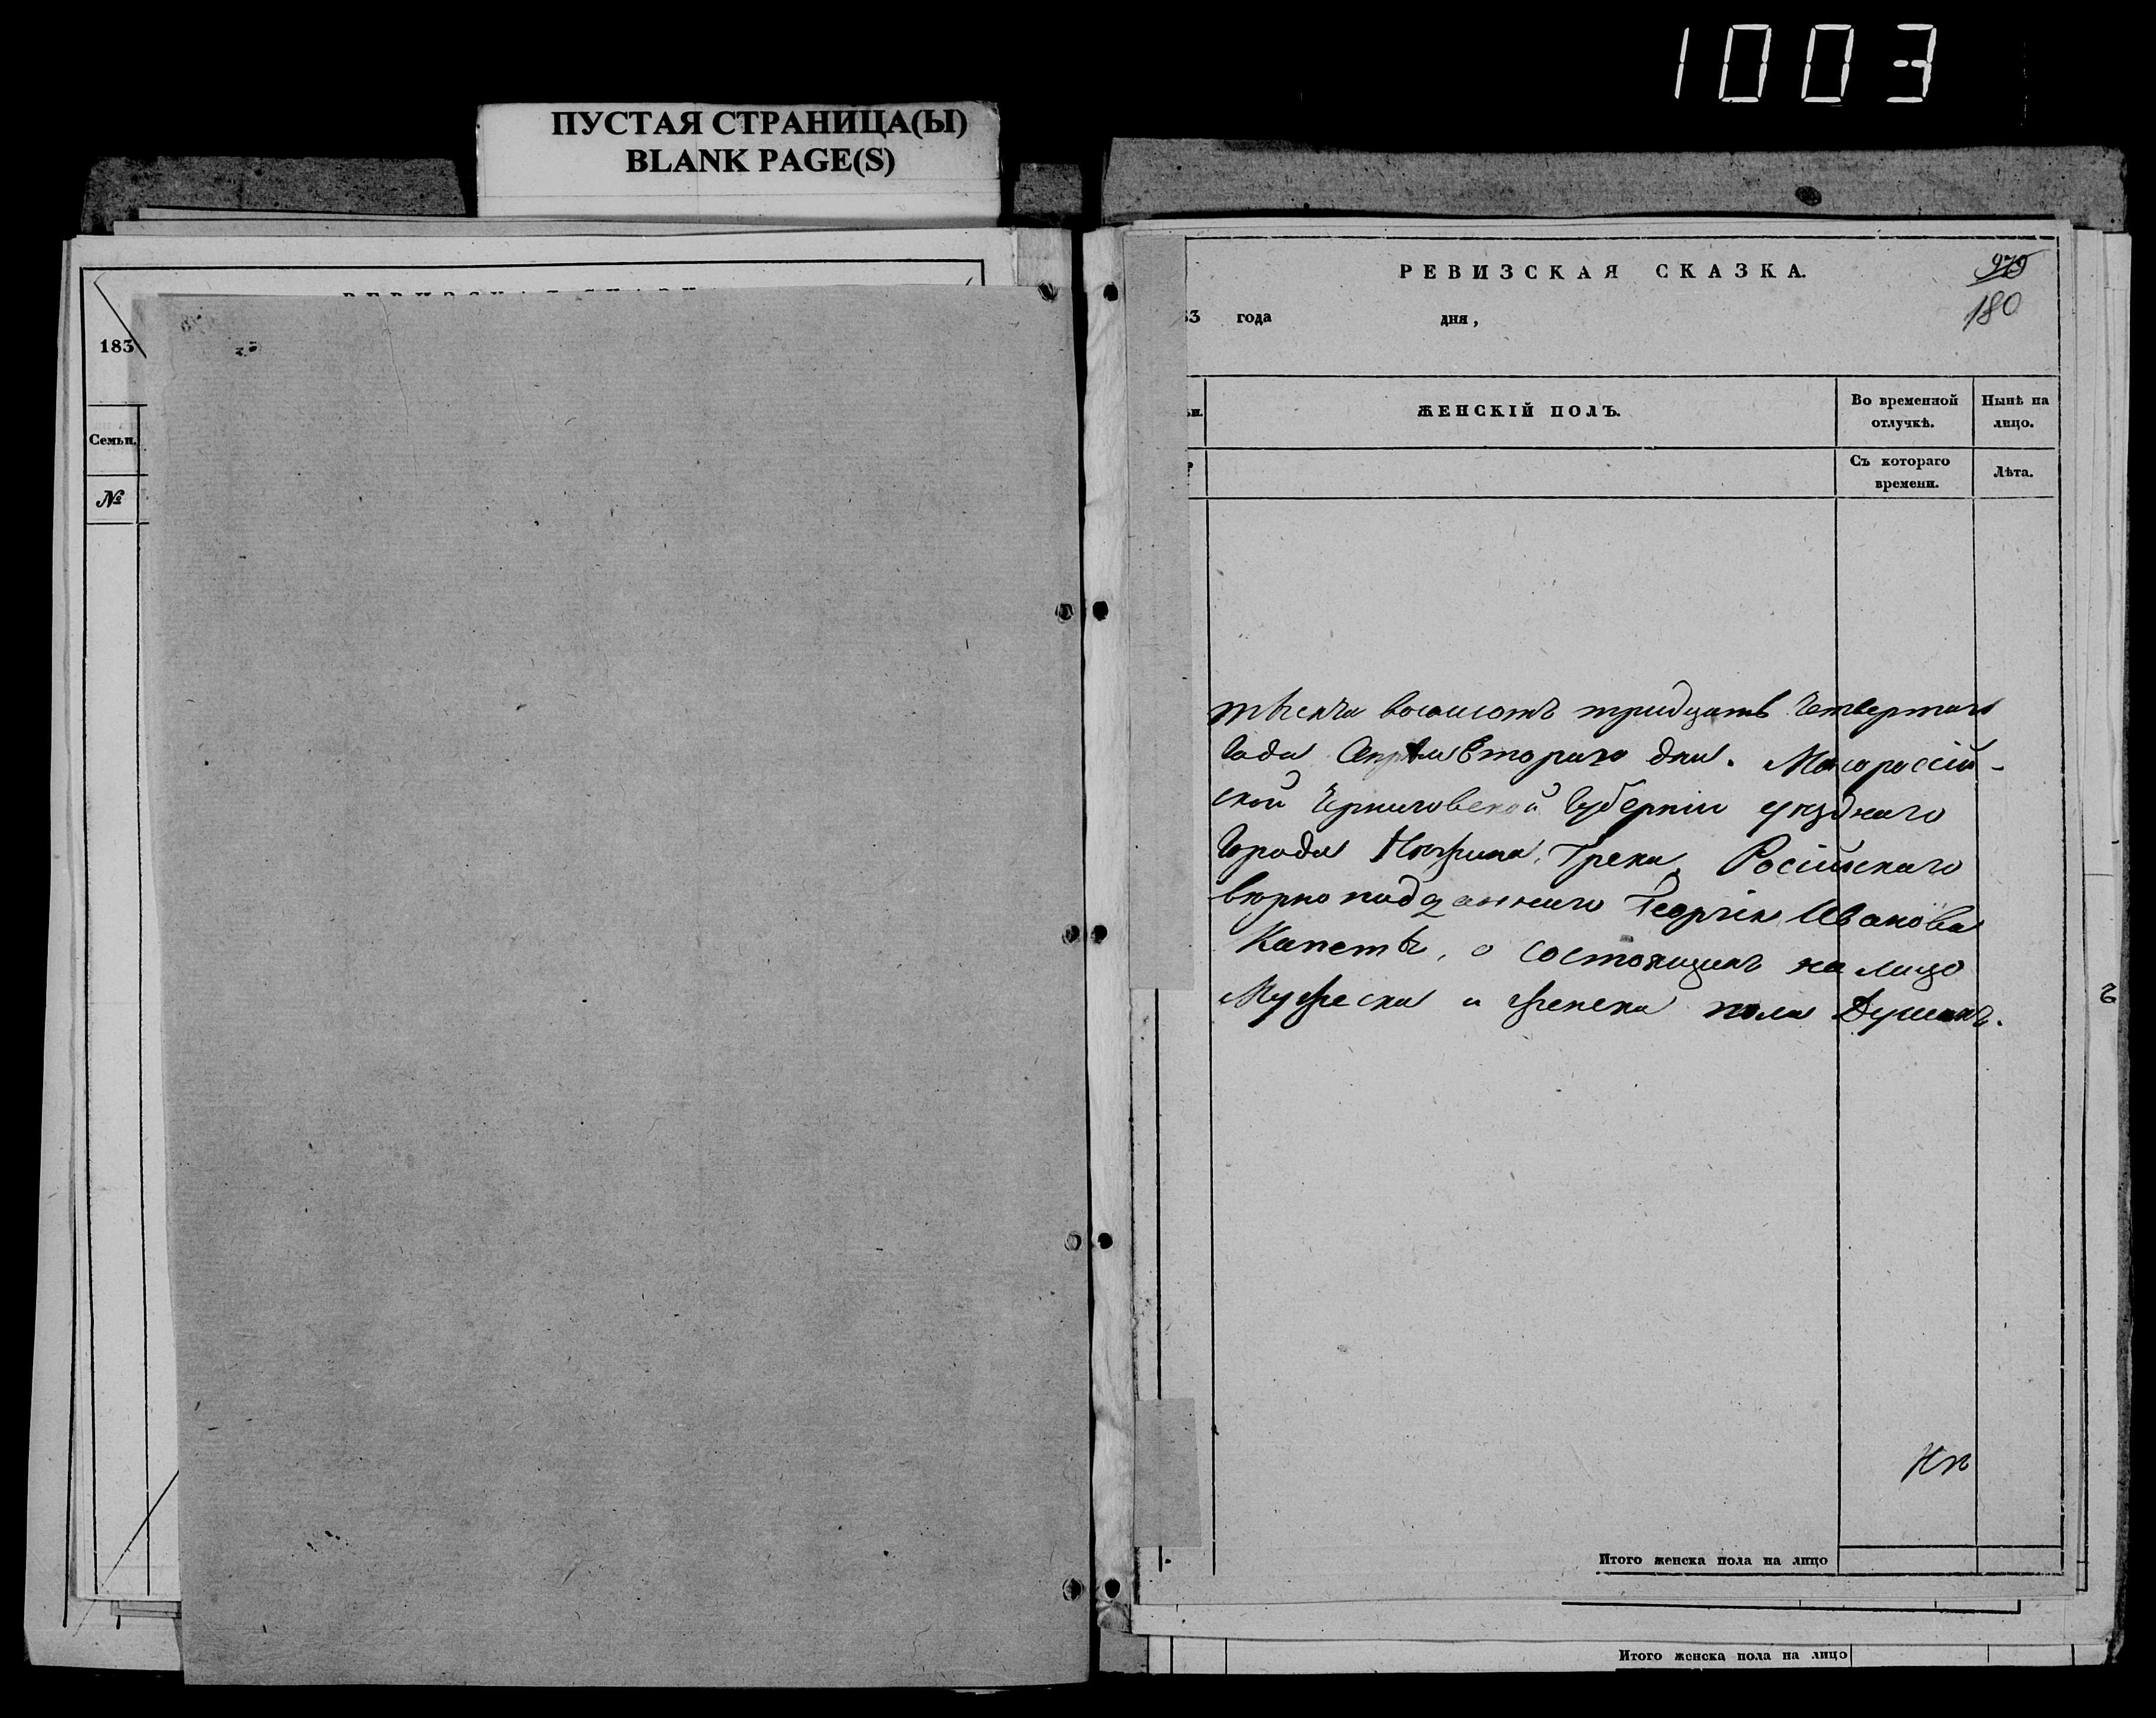 1003
ПУСТАЯ СТРАНИЦА(Ы)
BLANK PAGE(S)
183
Семьи.
№
РЕВИЗСКАЯ СКАЗКА.
979
180
года дня,
ЖЕНСКІЙ ПОЛЪ.
Во временной отлучкѣ.
Нынѣ на лицо.
Съ котораго времени.
Лѣта.
тысяча восемсотъ тридцать четвертаго
Года Апрѣля Втораго дня. Малороссій-
ской Черниговской Губерніи уѣзднаго
Города Нѣжина, Грека, Російскаго
вѣрно подданнаго Георгія Иванова
Капеты, о состоящихъ на лицо
Мужеска и женска пола Душахъ.
Итого женска пола на лицо
Итого женска пола на лицо